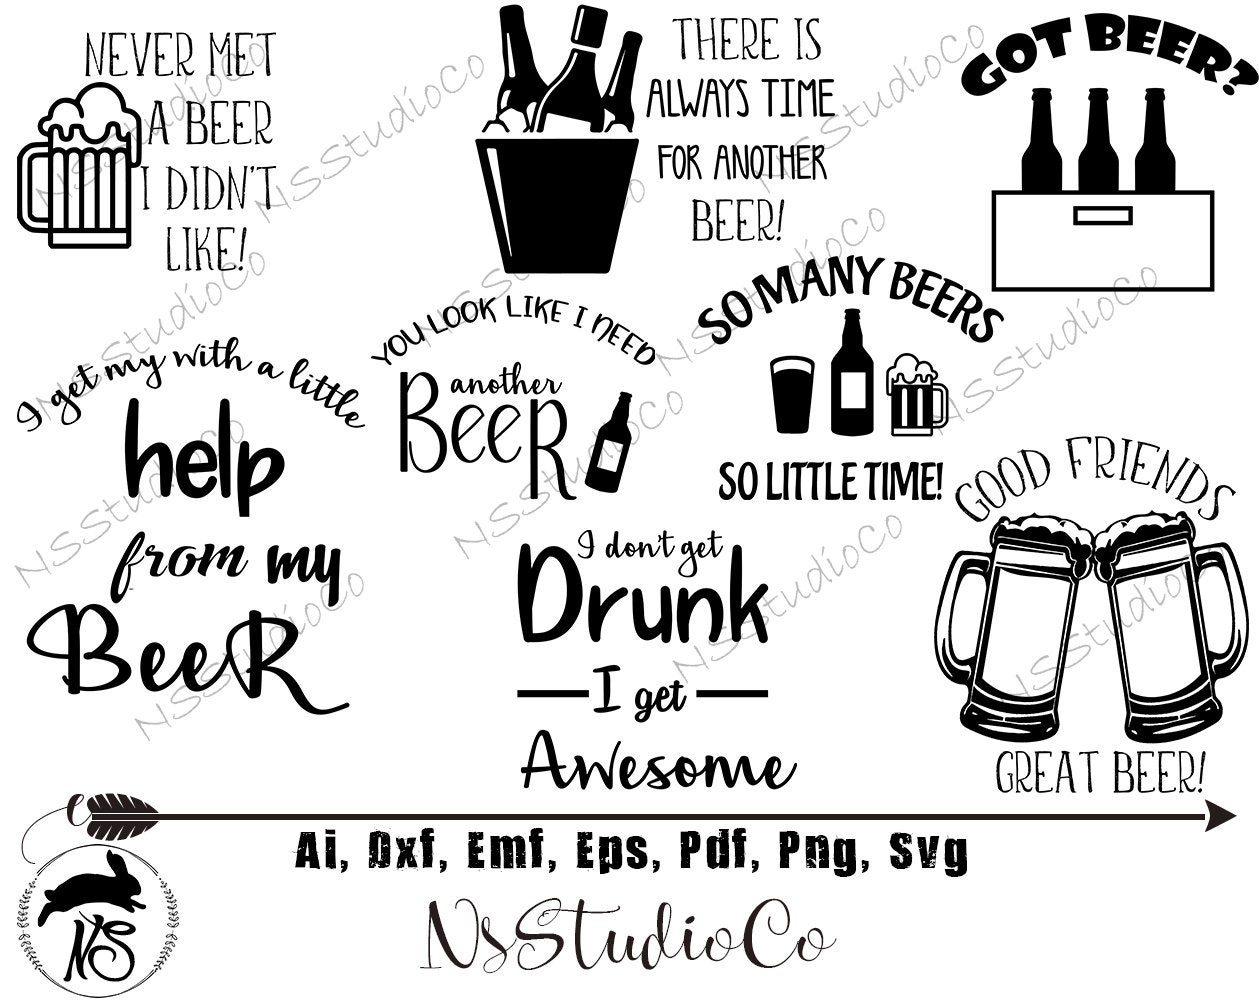 NEVER MET
A BEER
I DIDN'T
LIKE!
THERE IS
ALWAYS TIME
FOR ANOTHER
BEER!
GOT BEER?
I get my with a little
help
from my
BeeR
YOU LOOK LIKE I NEED
another
BeeR
SO MANY BEERS
SO LITTLE TIME!
I don't get
Drunk
I get
Awesome
GOOD FRIENDS
GREAT BEER!
Ai, Dxf, Emf, Eps, Pdf, Png, Svg
NS
NsStudioCo
NSStudioCo
NSStudioCo
NSStudioCo
NSStudioCo
NSStudioCo
NSStudioCo
NSStudioCo
NSStudioCo
NSStudioCo
NSStudioCo
NSStudioCo
NSStudioCo
NSStudioCo